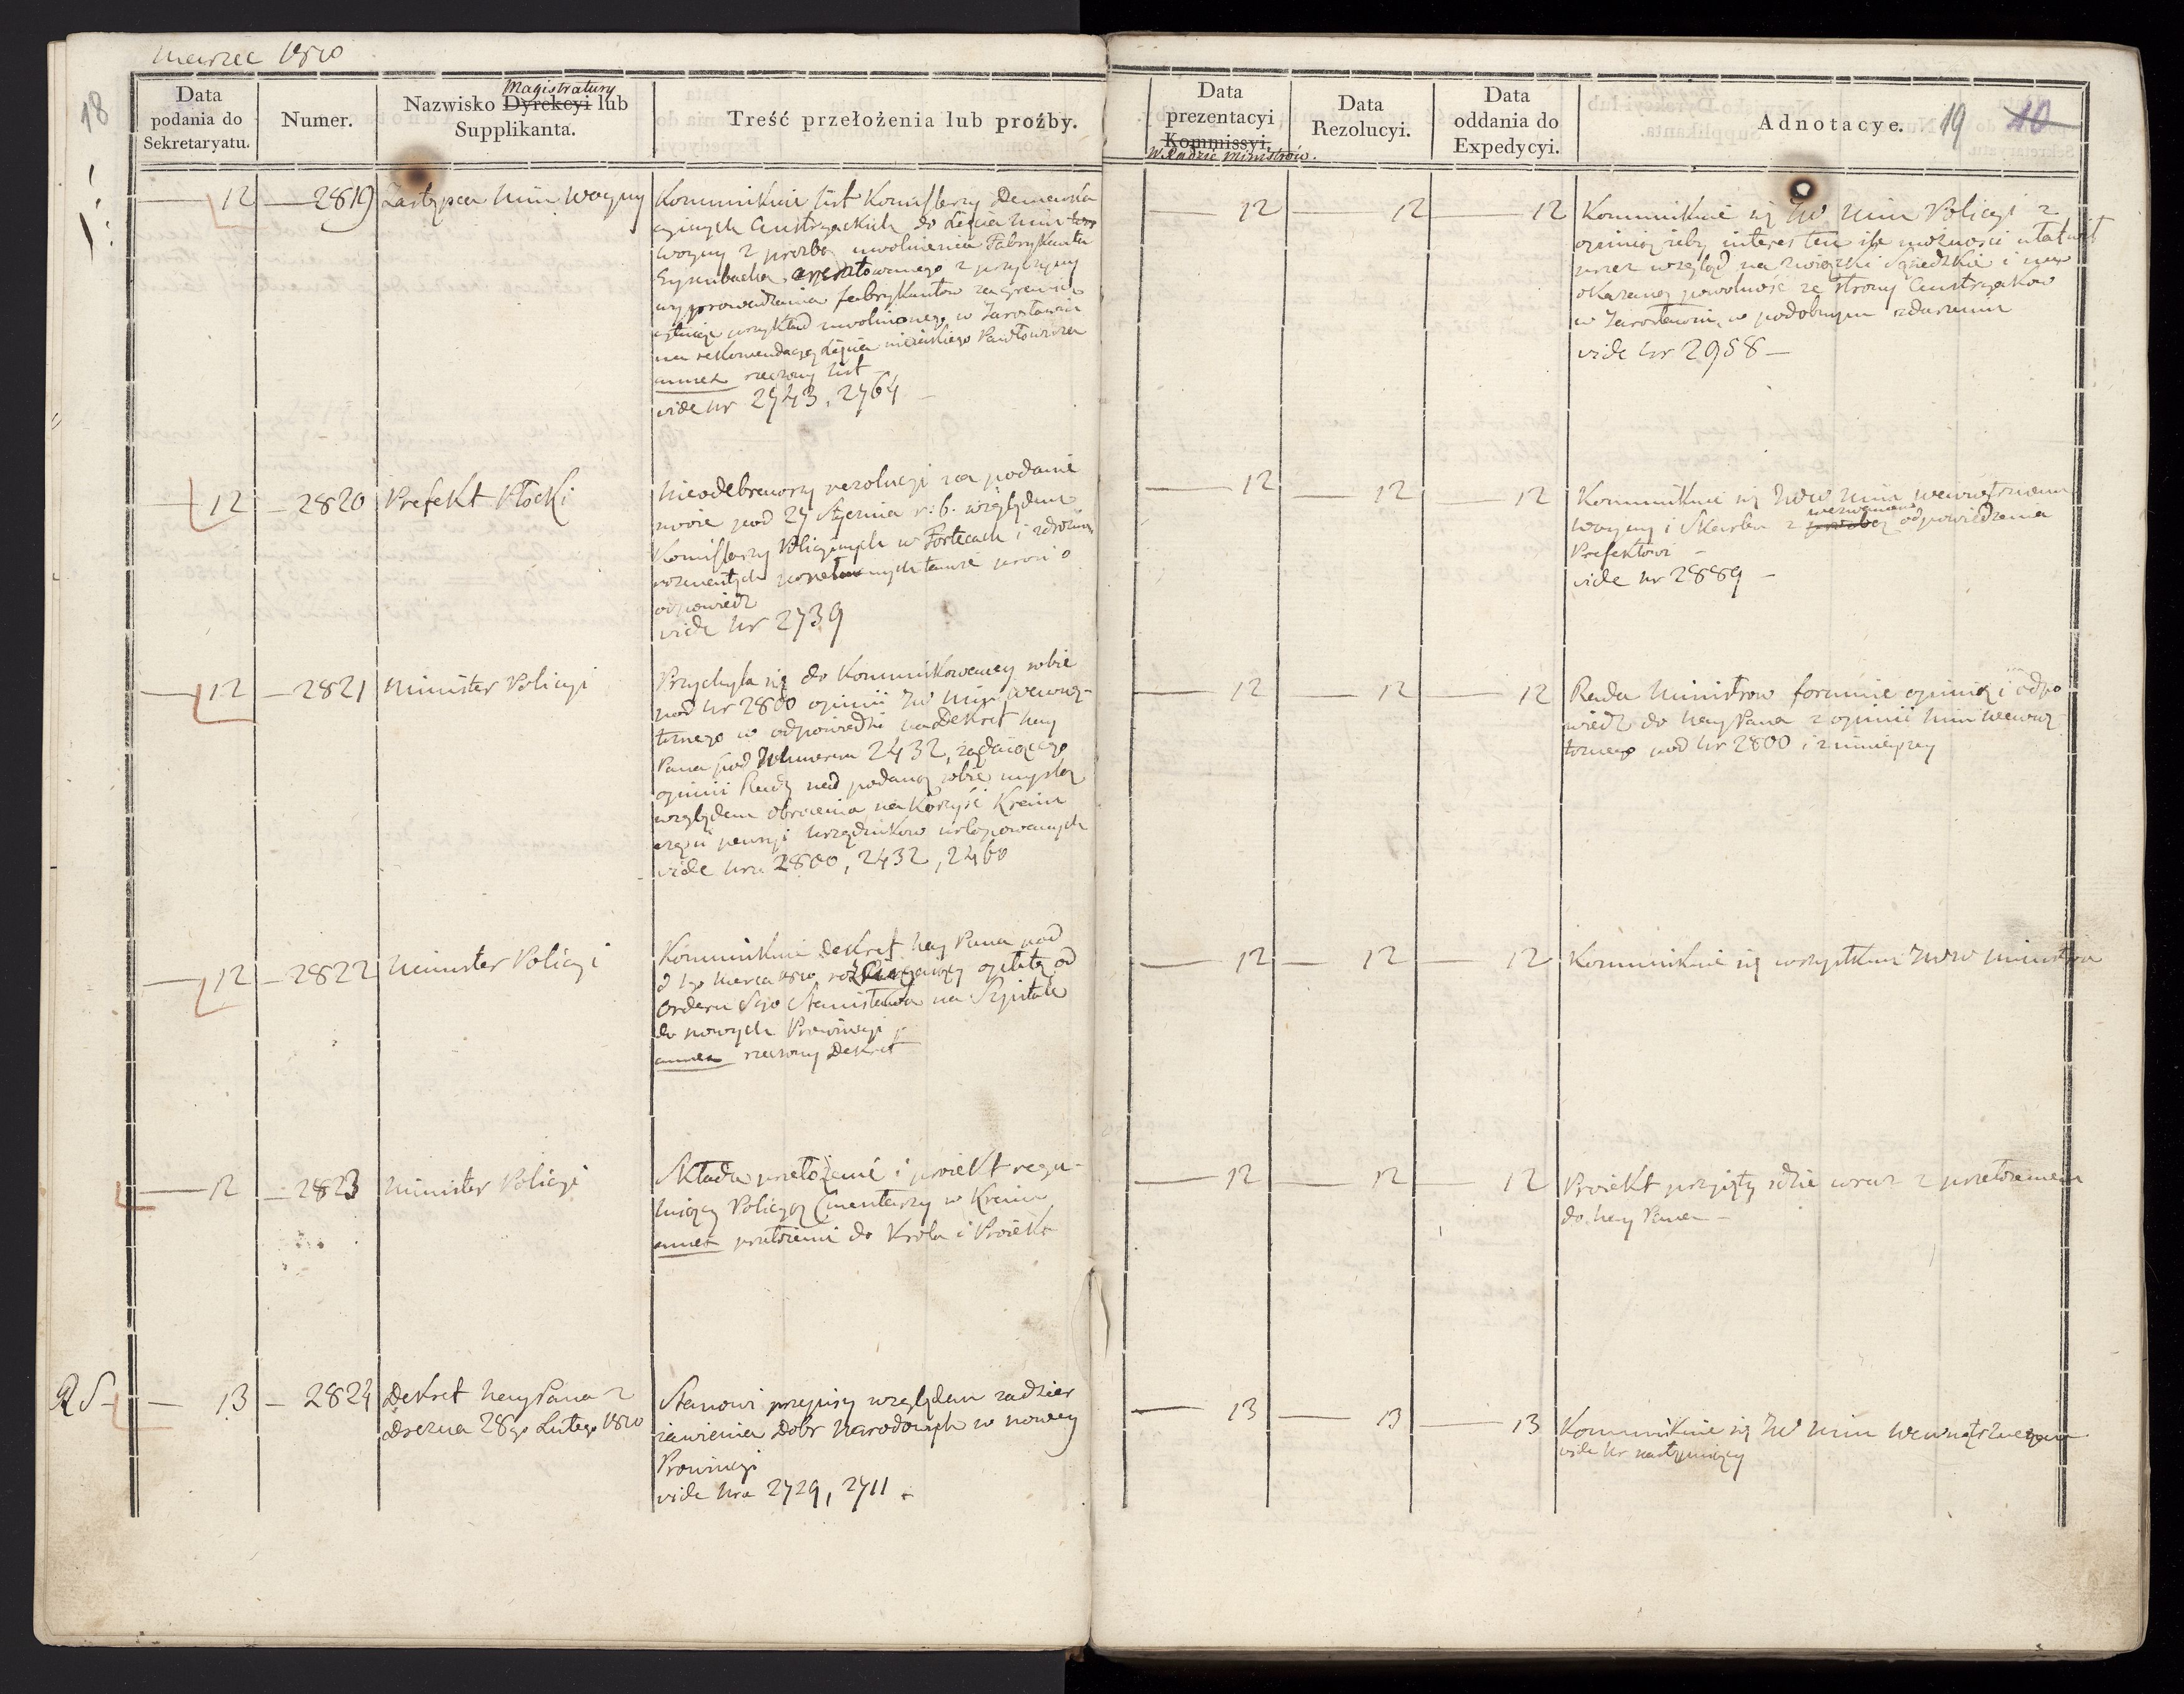 marzec 1810
18
Data podania do Sekretaryatu.
Numer.
Magistratury
Nazwisko Dyrekcyi lub Supplikanta.
Treść przełożenia lub proźby.
Data prezentacyi Kommissyi.
W Radzie Ministrów.
Data Rezolucyi.
Data oddania do Expedycyi.
Adnotacye.
19 10
12 — 2819 Zastępca Min Woyny
Kommunikuie list Komissarzy Demarka
cyinych Austryackich do Zastę Min
Woyny z prozbą uwolnienia Fabrykanta
aresztowanego z przyczyny
wyprowadzania fabrykantow za granicę
przykład uwolnionego w Jarosławiu
na rekomendacyą Pawłowicza
annex rzeczony list
vide nr 2743, 2764 —
— 12 — 12 — 12
Kommunikuie się JW Min Policyi z
opinią żeby interes ten ile możności ułatwił
przez wzgląd na związki Sąsiedzkie i na
okazaną powolność ze strony Austryaków
w Jarosławiu, w podobnym zdarzeniu
vide nr 2958 —
12 — 2820 Prefekt Płocki
Nieodebrawszy rezolucyi na podanie
swoie pod 27 Stycznia r: b. względem
Komissarzy Policyinych w Fortecach i
rozmaitych tamże prosi o
odpowiedz
vide nr 2739
— 12 — 12 — 12
Kommunikuie się JWW Min wewnętrznemu
wezwaniem
Woyny i Skarbu z prozbą odpowiedzenia
Prefektowi —
vide nr 2889 —
12 — 2821 Minister Policyi
Przychyla się do kommunikowaney sobie
pod nr 2800 opinii JW Min wewnę-
trznego w odpowiedzi na Dekret Nay
Pana pod Numerem 2432, żądaiącego
opinii Rady nad podaną sobie myslą
względem obrocenia na korzyść Kraiu
częsci pensyi Urzędnikow urlopowanych
vide nra 2800, 2432, 2460
— 12 — 12 — 12
Rada Ministrow formuie opinią i odpo
wiedz do Nay Pana z opinii Min wewnę
trznego pod nr 2800 i z ninieyszey
12 — 2822 Minister Policyi
Kommunikuie Dekret Nay Pana pod
d 1go Marca 1810 opłatę od
Orderu Sgo Stanisława na Szpitale
do nowych Prowincyi
annex rzeczony Dekret
— 12 — 12 — 12
Kommunikuie się wszystkim JWW Ministrom
— 12 — 2823 Minister Policyi
Składa przełożenie i proiekt regu-
luiący Policyą Cmentarzy w Kraiu
annex przełożenie do Krola i Proiekt
— 12 — 12 — 12
Proiekt przyięty idzie wraz z przełożeniem
do Nay Pana —
— 13 — 2824 Dekret Nay Pana z
Drezna 28go Lutego 1810
Stanowi przepisy względem zadzier
żawienia Dobr Narodowych w nowey
Prowincyi
vide nra 2729, 2711
— 13 — 13 — 13
Kommunikuie się JW Min wewnętrznemu
vide nr następuiący